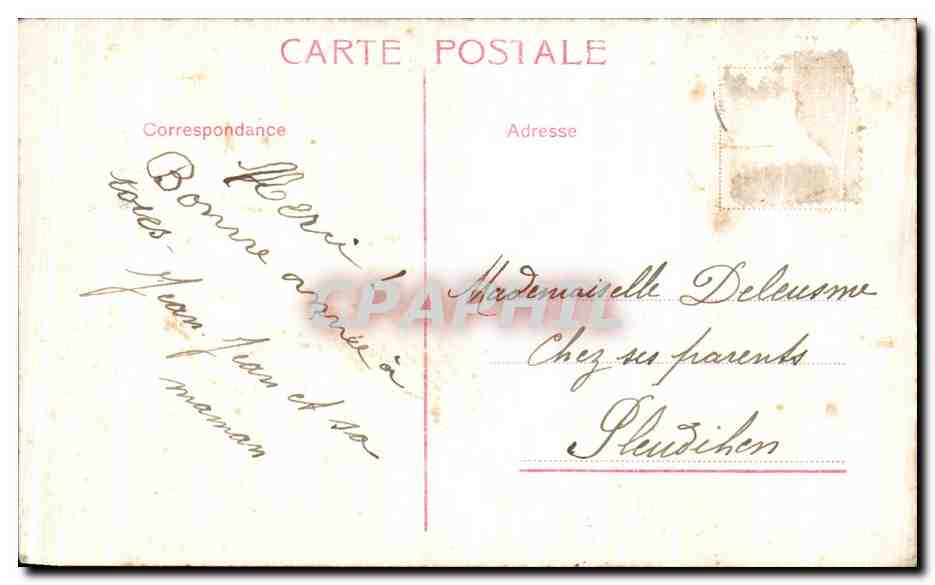 CARTE POSTALE
Correspondance
Adresse
Merci
Bonne année à
toutes. Jean. Jean et sa
maman
Mademoiselle Deleusme
Chez ses parents
Pleudihen
CPAPHIL